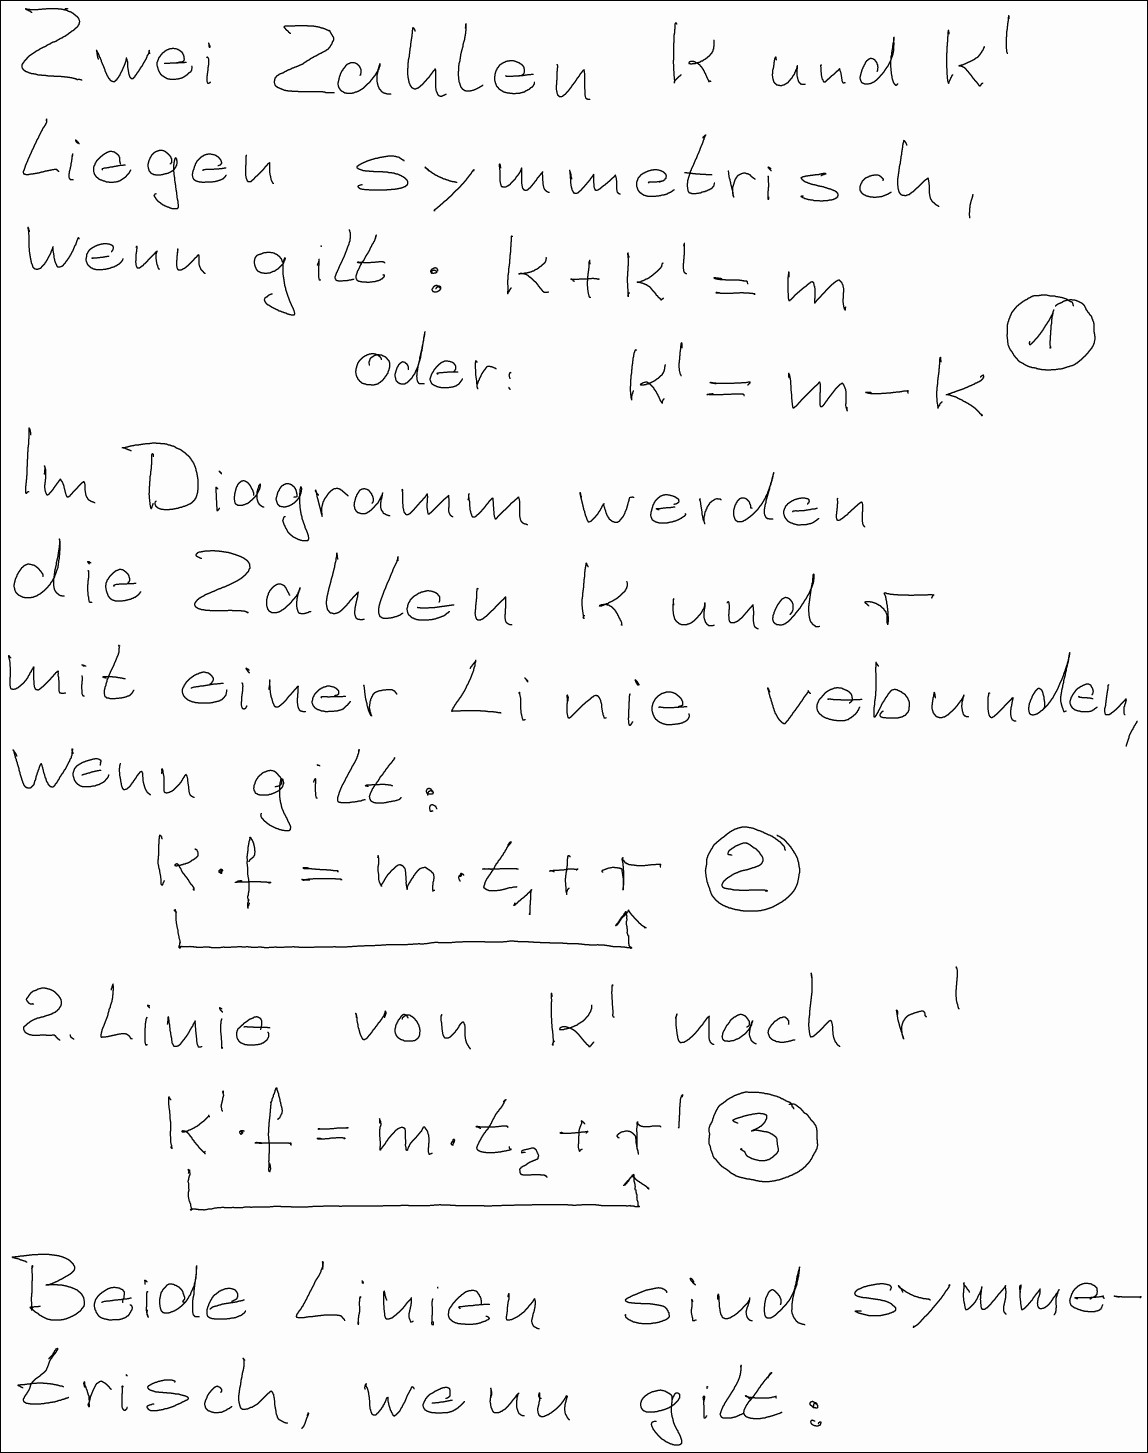 Zwei Zahlen k und k'
Liegen symmetrisch,
wenn gilt: k + k' = m
①
oder: k' = m - k
Im Diagramm werden
die Zahlen k und r
mit einer Linie vebunden,
wenn gilt:
k · f = m · t₁ + r ②
2. Linie von k' nach r'
k' · f = m · t₂ + r' ③
Beide Linien sind symme-
trisch, wenn gilt: